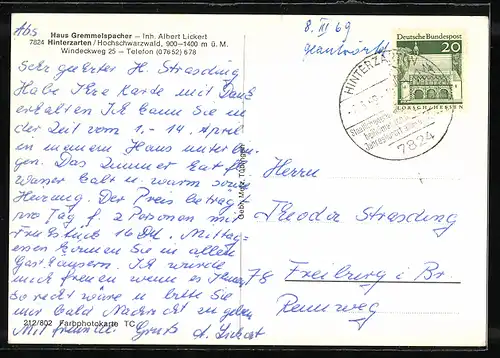 Abs
Haus Gremmelspacher – Inh. Albert Lickert
7824 Hinterzarten / Hochschwarzwald, 900–1400 m ü. M.
Windeckweg 25 – Telefon (07652) 678
Sehr geehrter H. Strasding
Habe Ihre Karte mit Dank
erhalten Ich kann Sie in
der Zeit vom 1. – 14. April
in meinem Haus unterbrin-
gen. Das Zimmer hat fl.
Wasser kalt u. warm sowie
Heizung. Der Preis beträgt
pro Tag f. 2 Personen mit
Frühstück 16 DM. Mittag-
essen können Sie in allen
Gasthäusern. Ich würde
mich freuen wenn es Ihnen
so recht wäre u bitte Sie
mir bald Nachricht zu geben
Mit freundl. Gruß A. Lickert
212/802 Farbphotokarte TC
Gebr. Metz, Tübingen
8. III 69
geantwortet
Deutsche Bundespost
20
LORSCH/HESSEN
HINTERZARTEN
7824
Herrn
Theodor Strasding
78 Freiburg i. Br.
Rennweg